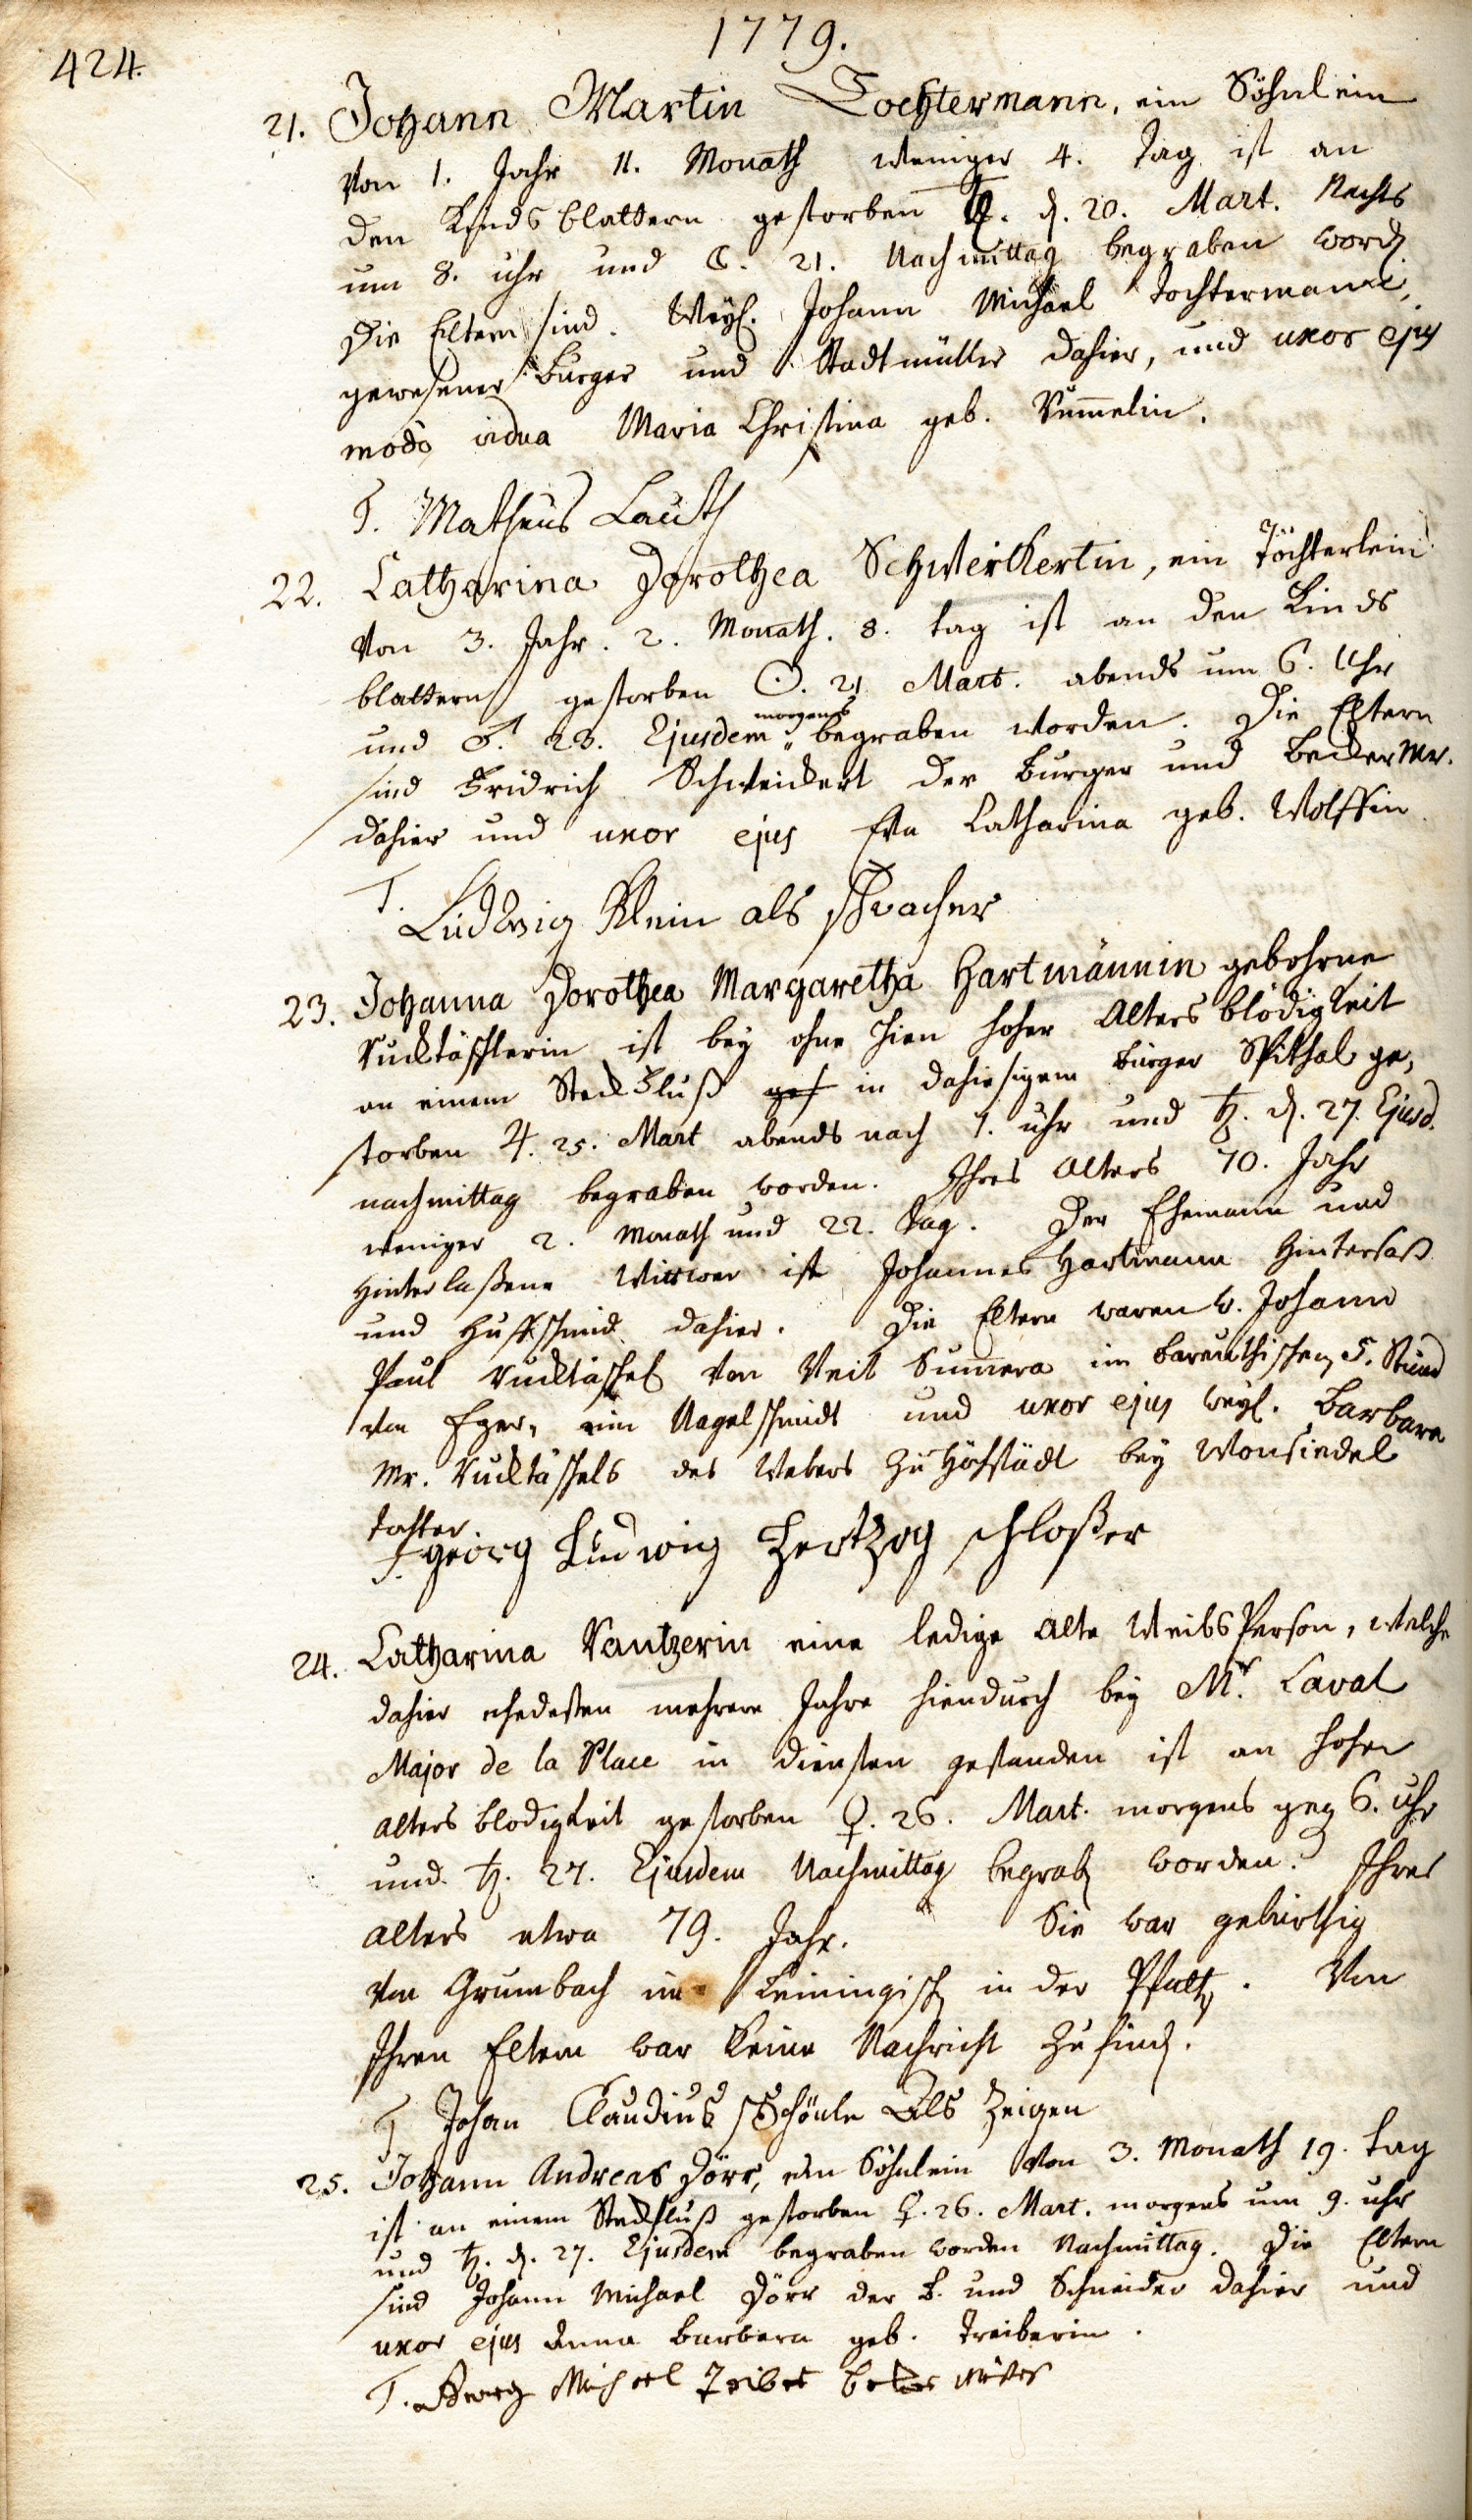 424.
1779.
21. Johann Martin Tochtermann, ein Söhnlein
von 1. Jahr 11. Monath weniger 4. Tag ist an
den Kindsblattern gestorben ♄. d. 20. Mart. Nachts
um 8. uhr und C. 21. Nachmittag begraben word
Die Eltern sind. Weyl. Johann Michael Tochtermann,
gewesener Burger und Stadtmüller dahier, und uxor ejus
modo vidua Maria Christina geb. Rum̄elin.
T. Matheus Lauth
22. Catharina Dorothea Schweickertin, ein Töchterlein
von 3. Jahr. 2. Monath. 8. tag ist an den Kinds
blattern gestorben ☉. 21 Mart. abends um 6. Uhr
und ♂. 23. Ejusdem morgends begraben worden. Die Eltern
sind Fridrich Schweickert der Burger und Becker Mr.
dahier und uxor ejus Eva Catharina geb. Wolffin
T. Ludwig Klein als
23. Johanna Dorothea Margaretha Hartmännin gebohrne
Rucktäschlerin ist bey ohne hien hoher Alters blödigkeit
an einem Steckfluß in dahiesigem Burger Spithal ge,
storben ♃. 25. Mart abends nach 1. uhr und ♄. d. 27. Ejusd.
nachmittag begraben worden. Ihres Alters 70. Jahr
weniger 2. Monath und 22. Tag. Der Ehemann und
Hinterlaßene Wittwer ist Johannes Hartmann Hintersaß
und Huffschmid dahier. Die Eltern waren w. Johann
Paul Rucktäschel von Veit Sum̄era im Bareuthischen 5. Stund
von Eger, ein Nagelschmidt und uxor ejus weyl. Barbara
Mr. Rucktäschels des Webers zu Höchstädt bey Wonsiedel
tochter.
T. georg Ludwig Hertzog schloßer
24. Catharina Rantzerin eine ledige alte Weibs Person, welche
dahier ehedessen mehrere Jahre hiendurch bey Mr. Laval
Major de la Place in diensten gestanden ist an hoher
alters blodigkeit gestorben ♀. 26. Mart. morgens geg 6. uhr
und ♄. 27. Ejusdem Nachmittag begrab worden. Ihres
alters etwa 79. Jahr. Sie war gebürthig
von Grumbach im Leiningisch in der Pfaltz. Von
Ihren Eltern war keine Nachricht zu find.
T Johan Claudius Schönle Als Zeigen
25. Johann Andreas Dörr, ein Söhnlein von 3. Monath 19. tag
ist an einem Steckfluß gestorben ♀. 26. Mart. morgens um 9. uhr
und ♄. d. 27. Ejusdem begraben worden Nachmittag. Die Eltern
sind Johann Michael Dörr der B. und Schneider dahier und
uxor ejus Anna Barbara geb. Treiberin.
T. Georg Michael Treiber